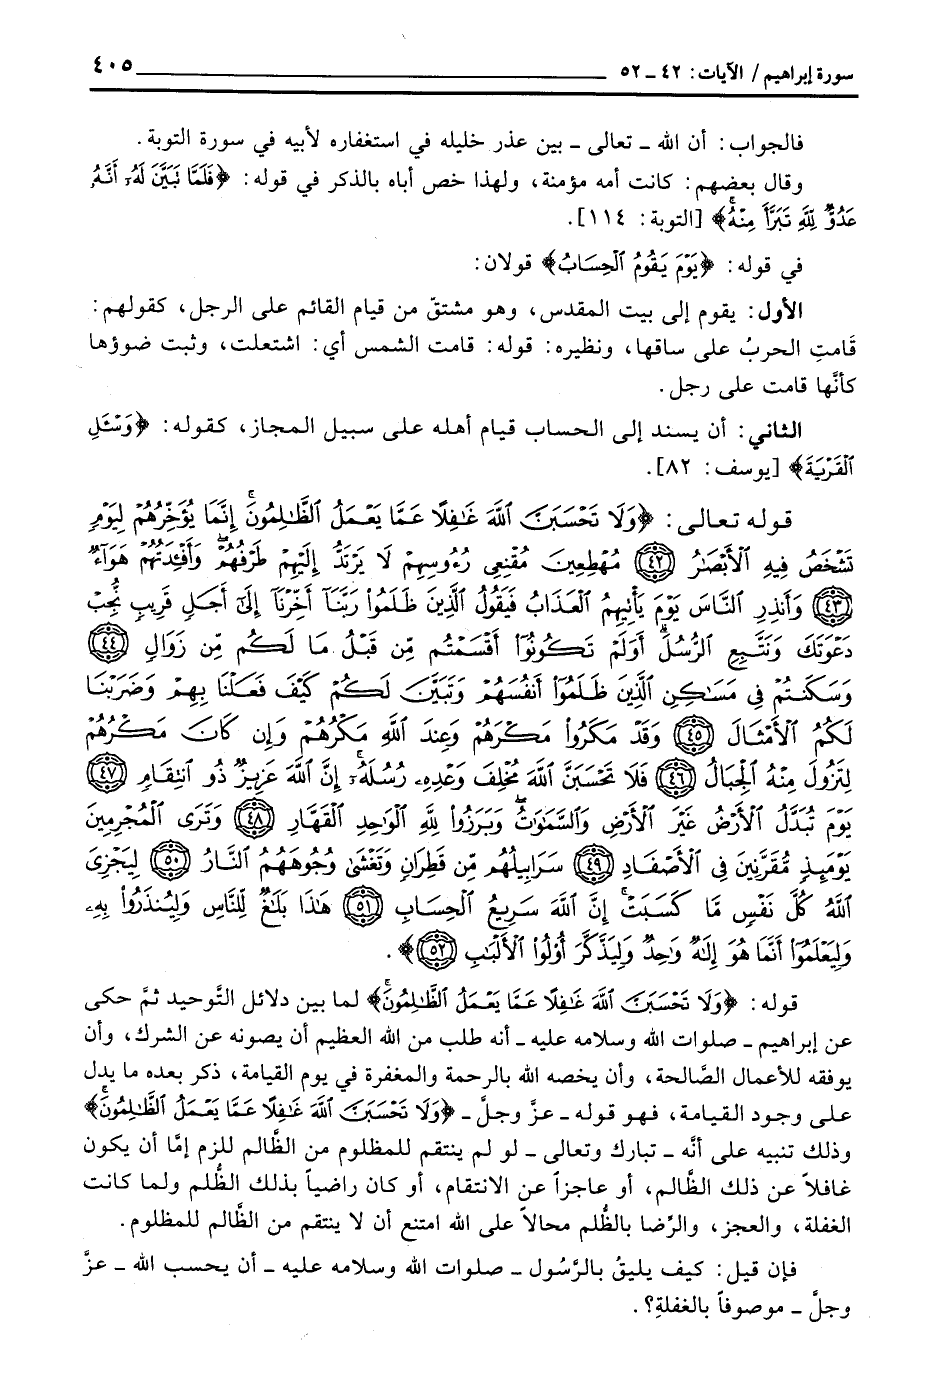 سورة إبراهيم / الآيات: ٤٢ ـ ٥٢ ٤٠٥
فالجواب: أن الله ـ تعالى ـ بين عذر خليله في استغفاره لأبيه في سورة التوبة.
وقال بعضهم: كانت أمه مؤمنة، ولهذا خص أباه بالذكر في قوله: ﴿فَلَمَّا تَبَيَّنَ لَهُۥٓ أَنَّهُۥ
عَدُوٌّ لِّلَّهِ تَبَرَّأَ مِنْهُۚ﴾ [التوبة: ١١٤].
في قوله: ﴿يَوْمَ يَقُومُ ٱلْحِسَابُ﴾ قولان:
الأول: يقوم إلى بيت المقدس، وهو مشتقّ من قيام القائم على الرجل، كقولهم:
قَامتِ الحربُ على ساقها، ونظيره: قوله: قامت الشمس أي: اشتعلت، وثبت ضوؤها
كأنَّها قامت على رجل.
الثاني: أن يسند إلى الحساب قيام أهله على سبيل المجاز، كقوله: ﴿وَسْـَٔلِ
ٱلْقَرْيَةَ﴾ [يوسف: ٨٢].
قوله تعالى: ﴿وَلَا تَحْسَبَنَّ ٱللَّهَ غَٰفِلًا عَمَّا يَعْمَلُ ٱلظَّٰلِمُونَۚ إِنَّمَا يُؤَخِّرُهُمْ لِيَوْمٍ
تَشْخَصُ فِيهِ ٱلْأَبْصَٰرُ ﴿٤٢﴾ مُهْطِعِينَ مُقْنِعِى رُءُوسِهِمْ لَا يَرْتَدُّ إِلَيْهِمْ طَرْفُهُمْۖ وَأَفْـِٔدَتُهُمْ هَوَآءٌ
﴿٤٣﴾ وَأَنذِرِ ٱلنَّاسَ يَوْمَ يَأْتِيهِمُ ٱلْعَذَابُ فَيَقُولُ ٱلَّذِينَ ظَلَمُوا۟ رَبَّنَآ أَخِّرْنَآ إِلَىٰٓ أَجَلٍ قَرِيبٍ نُّجِبْ
دَعْوَتَكَ وَنَتَّبِعِ ٱلرُّسُلَۗ أَوَلَمْ تَكُونُوٓا۟ أَقْسَمْتُم مِّن قَبْلُ مَا لَكُم مِّن زَوَالٍ ﴿٤٤﴾
وَسَكَنتُمْ فِى مَسَٰكِنِ ٱلَّذِينَ ظَلَمُوٓا۟ أَنفُسَهُمْ وَتَبَيَّنَ لَكُمْ كَيْفَ فَعَلْنَا بِهِمْ وَضَرَبْنَا
لَكُمُ ٱلْأَمْثَالَ ﴿٤٥﴾ وَقَدْ مَكَرُوا۟ مَكْرَهُمْ وَعِندَ ٱللَّهِ مَكْرُهُمْ وَإِن كَانَ مَكْرُهُمْ
لِتَزُولَ مِنْهُ ٱلْجِبَالُ ﴿٤٦﴾ فَلَا تَحْسَبَنَّ ٱللَّهَ مُخْلِفَ وَعْدِهِۦ رُسُلَهُۥٓۚ إِنَّ ٱللَّهَ عَزِيزٌ ذُو ٱنتِقَامٍ ﴿٤٧﴾
يَوْمَ تُبَدَّلُ ٱلْأَرْضُ غَيْرَ ٱلْأَرْضِ وَٱلسَّمَٰوَٰتُۖ وَبَرَزُوا۟ لِلَّهِ ٱلْوَٰحِدِ ٱلْقَهَّارِ ﴿٤٨﴾ وَتَرَى ٱلْمُجْرِمِينَ
يَوْمَئِذٍ مُّقَرَّنِينَ فِى ٱلْأَصْفَادِ ﴿٤٩﴾ سَرَابِيلُهُم مِّن قَطِرَانٍ وَتَغْشَىٰ وُجُوهَهُمُ ٱلنَّارُ ﴿٥٠﴾ لِيَجْزِىَ
ٱللَّهُ كُلَّ نَفْسٍ مَّا كَسَبَتْۚ إِنَّ ٱللَّهَ سَرِيعُ ٱلْحِسَابِ ﴿٥١﴾ هَٰذَا بَلَٰغٌ لِّلنَّاسِ وَلِيُنذَرُوا۟ بِهِۦ
وَلِيَعْلَمُوٓا۟ أَنَّمَا هُوَ إِلَٰهٌ وَٰحِدٌ وَلِيَذَّكَّرَ أُو۟لُوا۟ ٱلْأَلْبَٰبِ ﴿٥٢﴾﴾.
قوله: ﴿وَلَا تَحْسَبَنَّ ٱللَّهَ غَٰفِلًا عَمَّا يَعْمَلُ ٱلظَّٰلِمُونَۚ﴾ لما بين دلائل التَّوحيد ثمَّ حكى
عن إبراهيم ـ صلوات الله وسلامه عليه ـ أنه طلب من الله العظيم أن يصونه عن الشرك، وأن
يوفقه للأعمال الصَّالحة، وأن يخصه الله بالرحمة والمغفرة في يوم القيامة، ذكر بعده ما يدل
على وجود القيامة، فهو قوله ـ عزَّ وجلَّ ـ ﴿وَلَا تَحْسَبَنَّ ٱللَّهَ غَٰفِلًا عَمَّا يَعْمَلُ ٱلظَّٰلِمُونَۚ﴾
وذلك تنبيه على أنَّه ـ تبارك وتعالى ـ لو لم ينتقم للمظلوم من الظَّالم للزم إمَّا أن يكون
غافلاً عن ذلك الظَّالم، أو عاجزاً عن الانتقام، أو كان راضياً بذلك الظُّلم ولما كانت
الغفلة، والعجز، والرِّضا بالظُّلم محالاً على الله امتنع أن لا ينتقم من الظَّالم للمظلوم.
فإن قيل: كيف يليقُ بالرَّسُول ـ صلوات الله وسلامه عليه ـ أن يحسب الله ـ عزَّ
وجلَّ ـ موصوفاً بالغفلةِ؟.